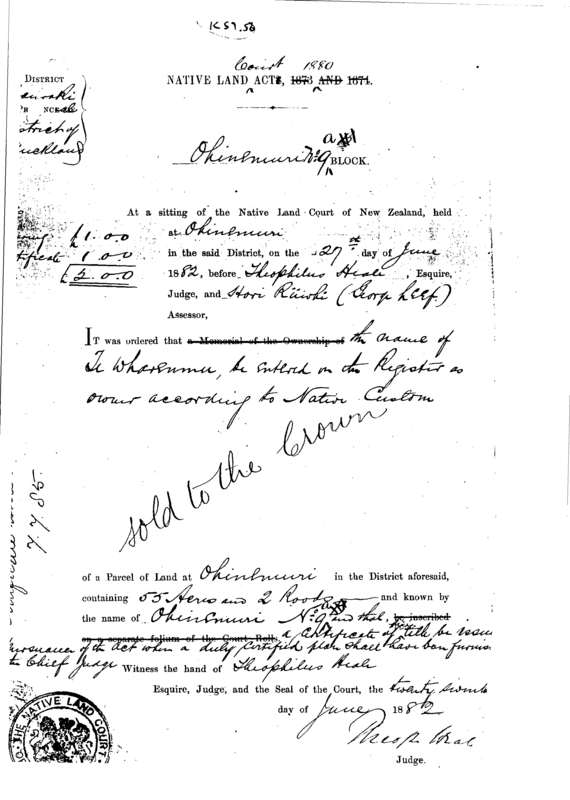 K 59.56
Court 1880
NATIVE LAND ACTS, 1873 AND 1874.
DISTRICT
Ohinemuri No 9 a BLOCK.
At a sitting of the Native Land Court of New Zealand, held
at Ohinemuri
£1.0.0
in the said District, on the 27th day of June
1 0 0
1882, before Theophilus Heale, Esquire,
£2.0.0
Judge, and Hori (George
Assessor,
IT was ordered that a Memorial of the Ownership of the name of
Te Wharenui, be entered on the Register as
owner according to Native Custom
sold to the Crown
of a Parcel of Land at Ohinemuri in the District aforesaid,
containing 55 Acres and 2 Roods and known by
the name of Ohinemuri No 9 a and that, be inscribed
on a separate folium of the Court Rolls a Certificate of title be issued
pursuance of the Act when a duly certified plan shall have been
to Chief Judge Witness the hand of Theophilus Heale
Esquire, Judge, and the Seal of the Court, the twenty
day of June 1882
Theop Heale
Judge.
THE NATIVE LAND COURT